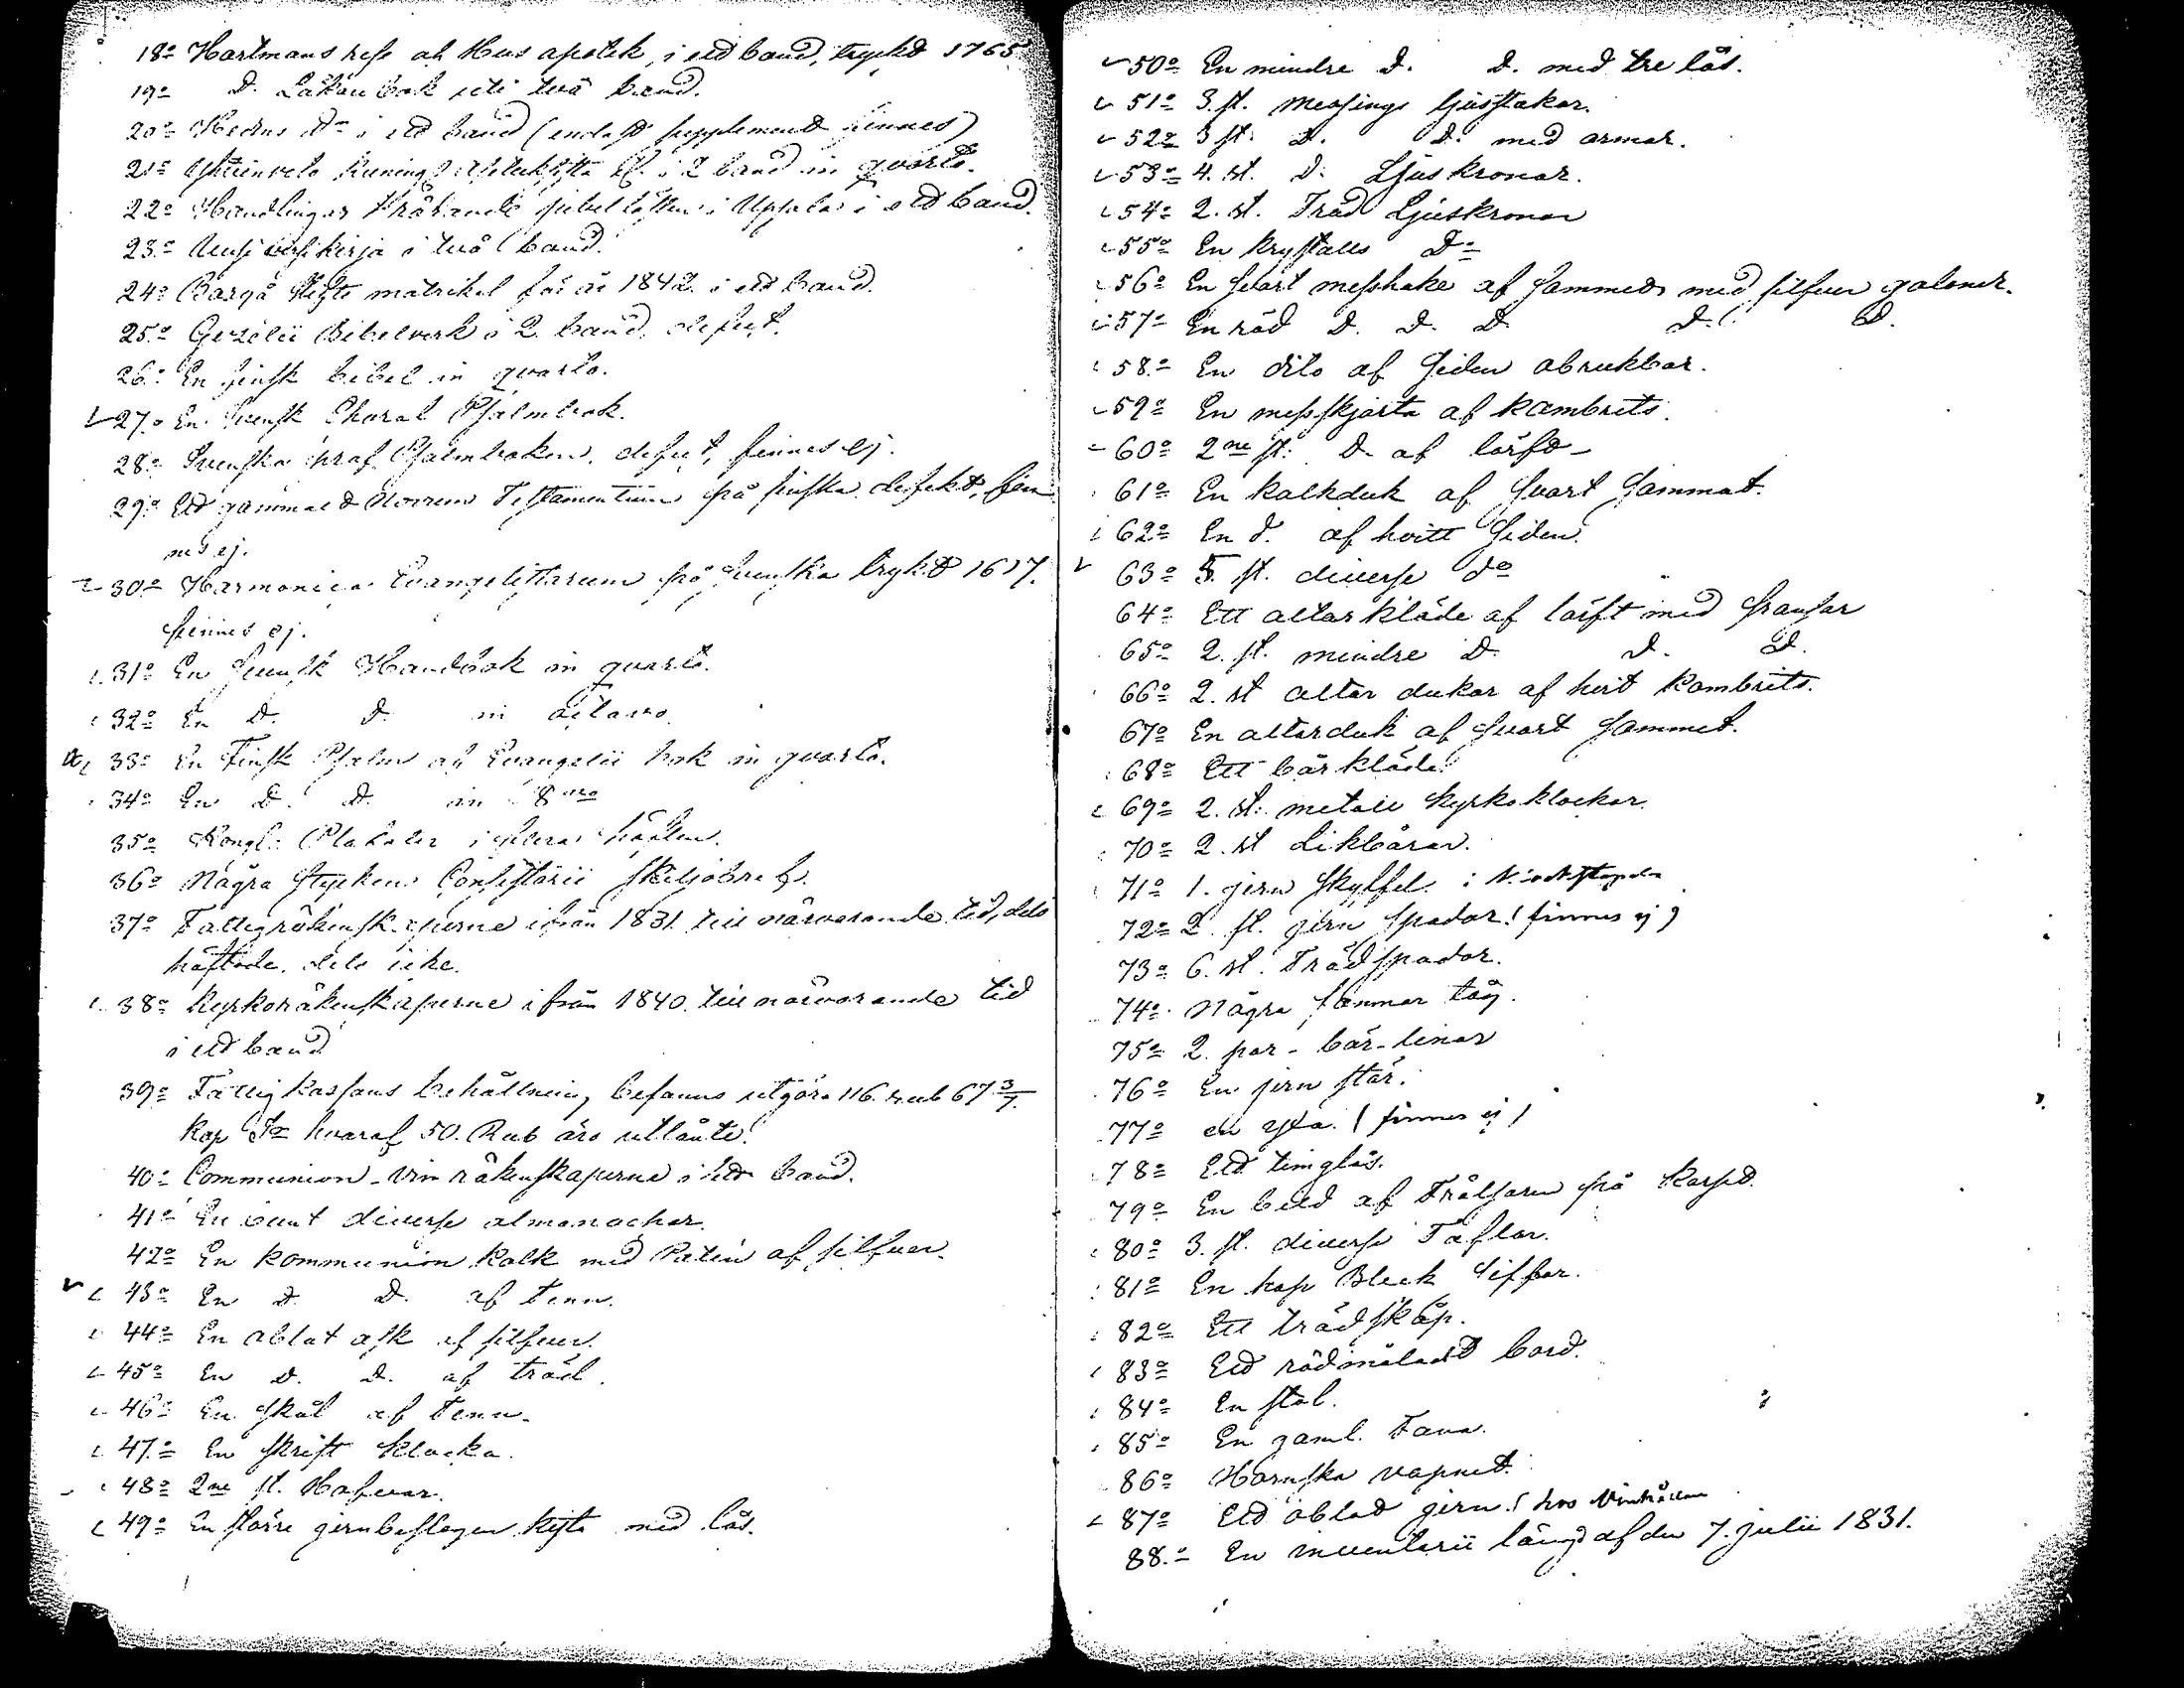 18o Hartmans rese ah Hus apotek, i etd band, tryckt 1765
19o D. Läkarebok uti två band.
20o Hedins Do i etd band (endast supplement finnes)
21o i 2 band in qvarto.
22o Handlingar rörande jubelfästen i Uppsala i etd band.
23o i två band.
24o Borgå Stifts matrikel för år 1842. i etd band.
25o Gezelii Bibelverk i 2. band, defect.
26o En finsk bibel in qvarto.
27o En Svensk Choral Psalmbok.
28o Svenska prof Psalmboken, defect, finnes ej.
29o Etd gammalt Novum Testamentum på finska, defekt, fin-
nes ej.
30o Harmonica Evangelistarum på Svenska trykt 1617.
finnes ej.
31o En Svensk Handbok in qvarto.
32o En D. D. in octavo.
33o En Finsk Psalm och Evangelii bok in qvarto.
34o En D. D. in 8vo
35o Kongl. Plakater i flera häften.
36o Några stycken Consistorii skiljobref.
37o Fattigräkenskaperne ifrån 1831. till närvarande tid, dels
häftade, dels icke.
38o Kyrkoräkenskaperne ifrån 1840. till närvarande tid
i etd band
39o Fattigkassans behållning befanns utgöra 116. rub 67 3/7.
kop Sr hvaraf 50. Rub äro utlånte.
40o Communion-vin räkenskaperne i etd band.
41o En bunt diverse almanachor.
42o En kommunion kalk med Paten af silfver.
43o En D. D. af tenn.
44o En ablat ask af silfver.
45o En D. D. af träd.
46o En skål af tenn.
47o En skrift klocka.
48o 2ne st. Hafvar.
49o En större jernbeslagen kista med lås.
50o En mindre D. D. med tre lås.
51o 3. st. messings ljusstakar.
52o 3 st. D. D. med armar.
53o 4. st. D. Ljuskronor.
54o 2. st. Träd Ljuskronor
55o En krystalls Do
56o En svart messhake af sammed med silfver galoner.
57o En röd D. D. D. D. D.
58o En dito af siden obrukbar.
59o En messkjorta af kambrits.
60o 2ne st. D. af lärfd
61o En kalkduk af svart sammat.
62o En d. af hvitt siden.
63o 5. st. diverse do
64o Ett altarkläde af lärft med fransar
65o 2. st. mindre D. D. D.
66o 2. st altar dukar af hvit kambrits.
67o En altarduk af svart sammet.
68o Ett bårkläde
69o 2. st. metall kyrkoklockor.
70o 2. st Likbårar.
71o 1. jern skyffel. i klockstapeln
72o 2. st. jern spador. (finnes ej)
73o 6. st. Trädspador.
74o Några famnar tåg.
75o 2. par bår-linor
76o En jern stör.
77o en yxa. (finnes ej)
78o Etd timglas.
79o En bild af Frälsaren på korset.
80o 3. st. diverse Taflor.
81o En hop Bleck siffror.
82o Ett träd skåp.
83o Etd rödmåladt bord.
84o En stol.
85o En gaml. Fana.
86o Hornska vapnet.
87o Etd oblad jern. (hos
88o En inventarii längd af den 7. julii 1831.